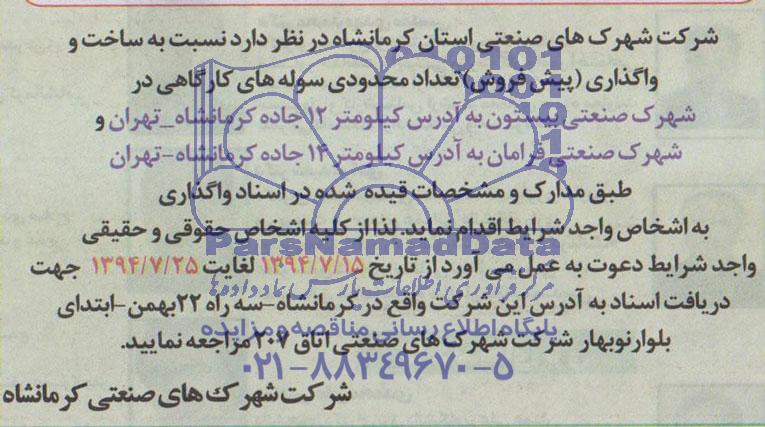 شرکت شهرک های صنعتی استان کرمانشاه در نظر دارد نسبت به ساخت و
واگذاری (پیش فروش) تعداد محدودی سوله های کارگاهی در
شهرک صنعتی بیستون به آدرس کیلومتر ۱۲ جاده کرمانشاه_تهران و
شهرک صنعتی فرامان به آدرس کیلومتر ۱۴ جاده کرمانشاه-تهران
طبق مدارک و مشخصات قیده شده در اسناد واگذاری
به اشخاص واجد شرایط اقدام نماید. لذا از کلیه اشخاص حقوقی و حقیقی
ParsNamadData
واجد شرایط دعوت به عمل می آورد از تاریخ ۱۳۹۴/۷/۱۵ لغایت ۱۳۹۴/۷/۲۵ جهت
مرکز فرآوری اطلاعات پارس نماد داده ها
دریافت اسناد به آدرس این شرکت واقع در کرمانشاه-سه راه ۲۲بهمن-ابتدای
پایگاه اطلاع رسانی مناقصه و مزایده
بلوارنوبهار شرکت شهرک های صنعتی اتاق ۲۰۷ مراجعه نمایید.
۰۲۱-۸۸۳۴۹۶۷۰-۵
شرکت شهرک های صنعتی کرمانشاه